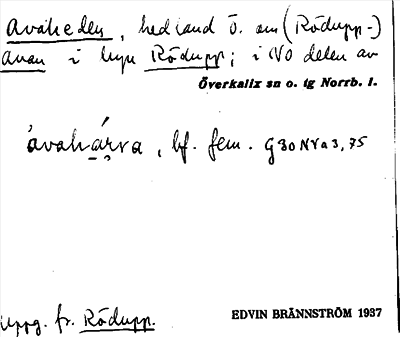 Avaheden, hedland ö. om (Rödupp-)
avan i byn Rödupp; i NO delen av
Överkalix sn o. tg Norrb. l.
ávahárva, bf. fem. G30NVa3,75
Uppg. fr. Rödupp.
EDVIN BRÄNNSTRÖM 1937